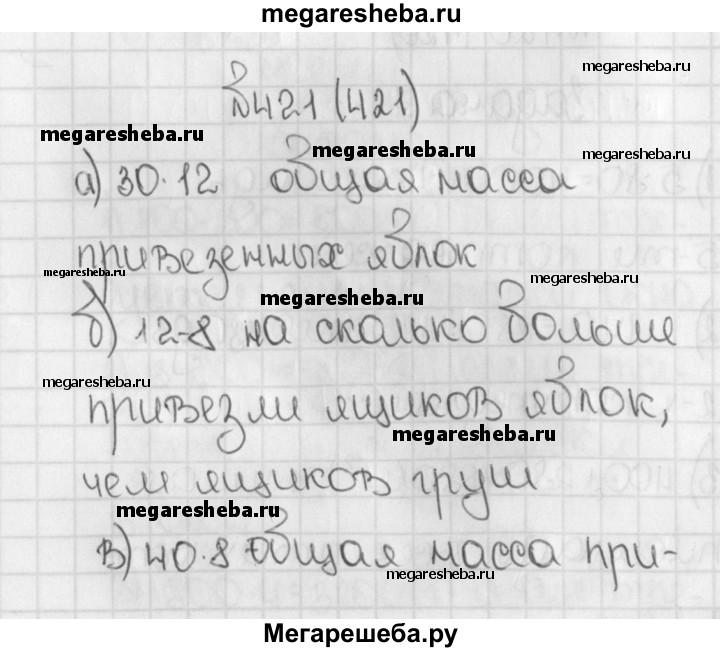 megaresheba.ru
№421 (421)
megaresheba.ru
megaresheba.ru
megaresheba.ru
megaresheba.ru
а) 30·12 общая масса
привезенных яблок
megaresheba.ru
megaresheba.ru
megaresheba.ru
б) 12-8 на сколько больше
megaresheba.ru
привезли ящиков яблок,
megaresheba.ru
чем ящиков груш
megaresheba.ru
в) 40·8 общая масса при-
megaresheba.ru
Мегарешеба.ру